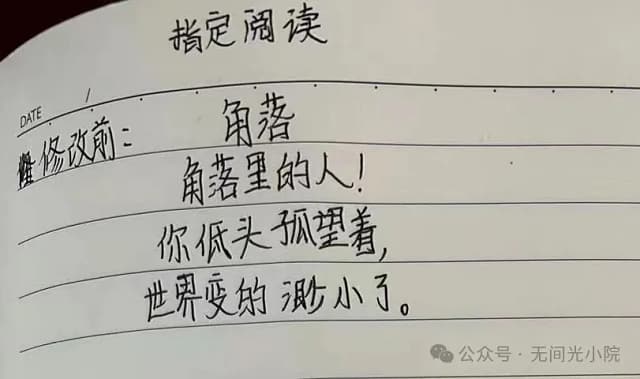 指定阅读
DATE /
修改前: 角落
角落里的人!
你低头孤望着,
世界变的渺小了。
公众号·无间光小院